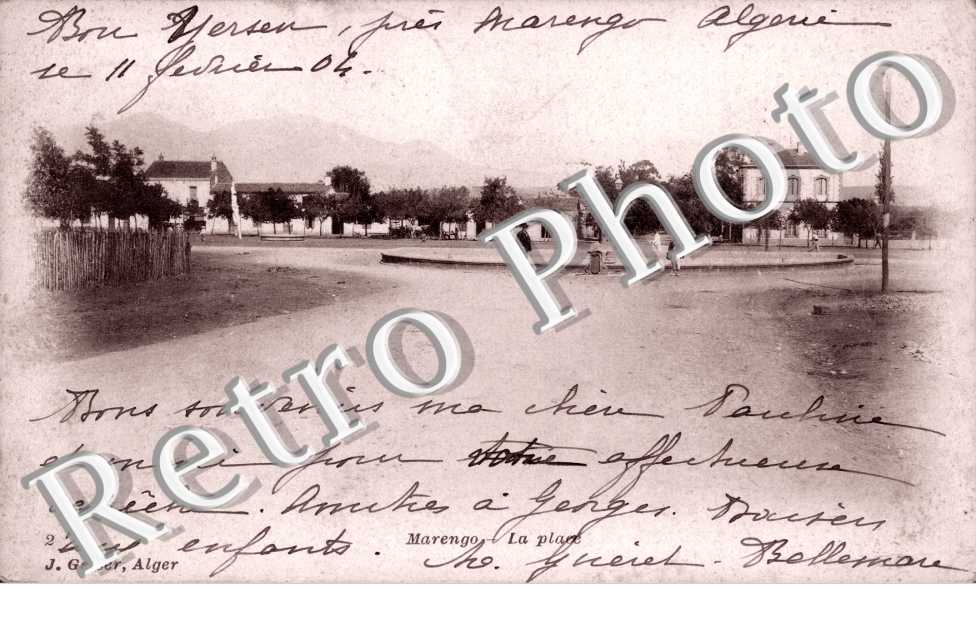 Bou Yersen, près Marengo Algérie
le 11 février 04.
Retro Photo
Bons souvenirs ma chère Pauline
et merci pour votre affectueuse
Amitiés à Georges. Baisers
aux enfants.
2 Marengo - La place
J. Geiser, Alger
Guéret-Bellemare